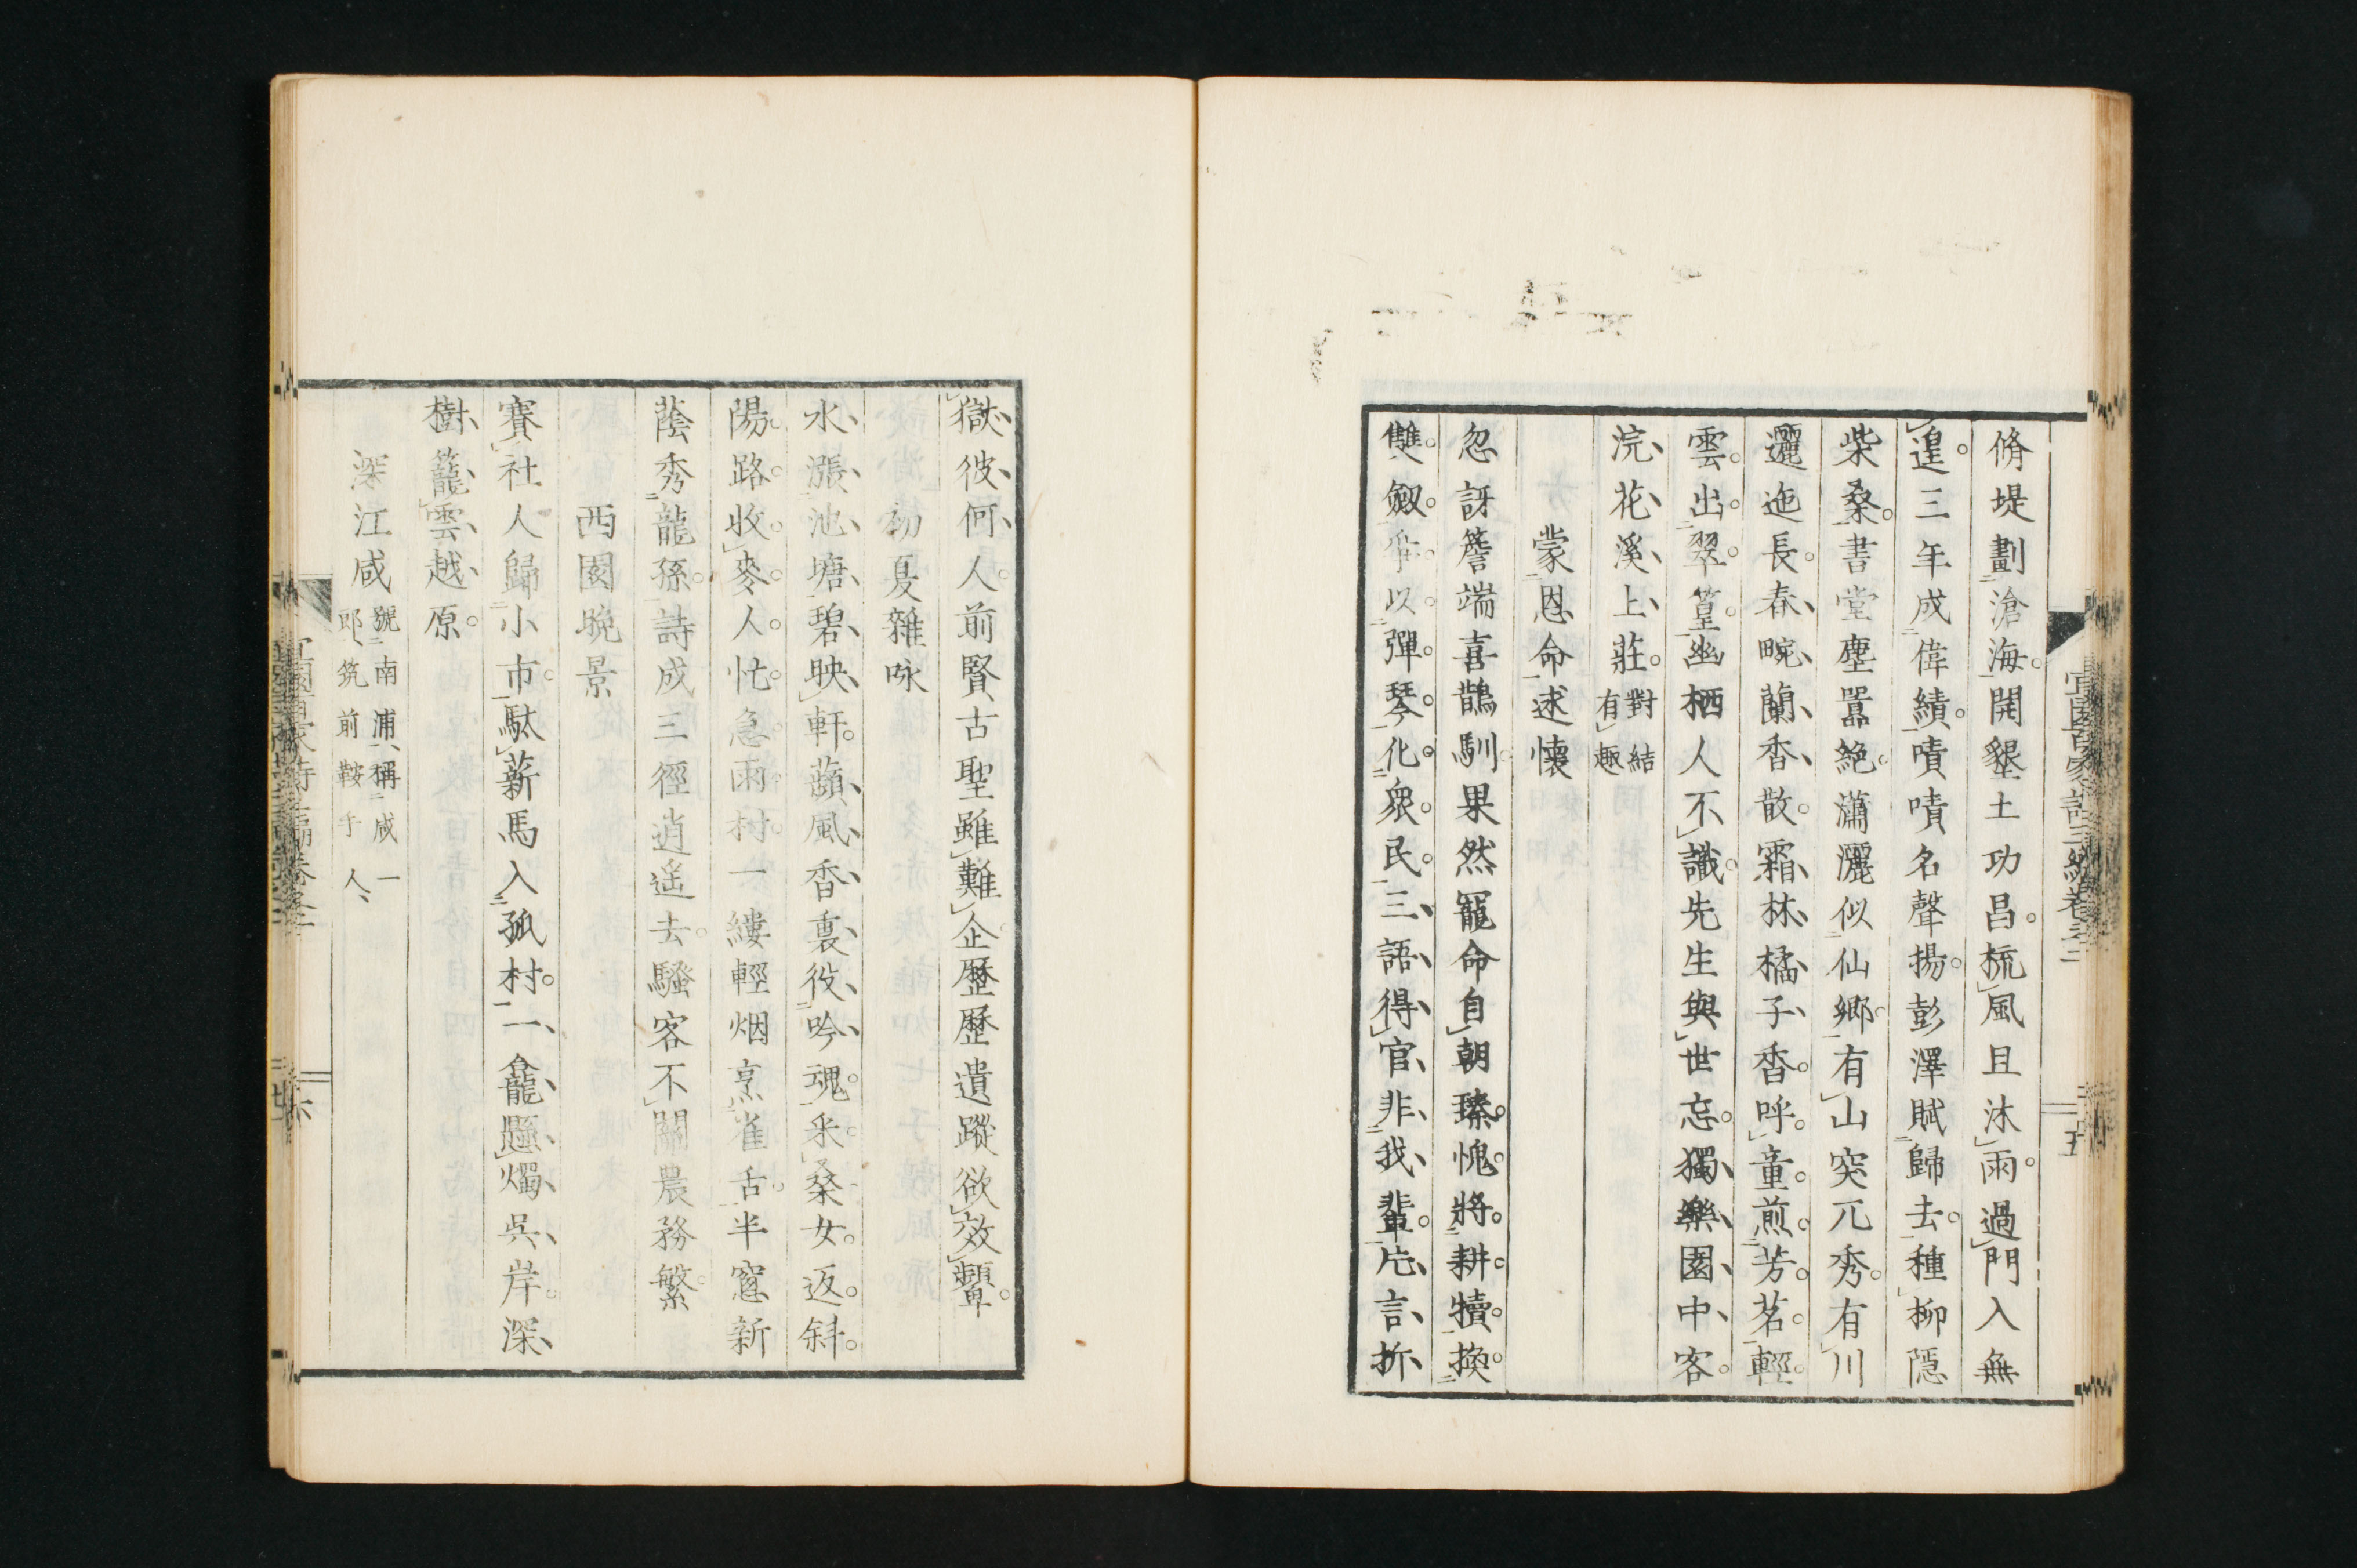 脩堤劃滄海。開墾土功昌。梳風且沐雨。過門入無
遑。三年成偉績。嘖嘖名聲揚。彭澤賦歸去。種柳隱
柴桑。書堂塵囂絶。瀟灑似仙郷。有山突兀秀。有川
邐迤長。春畹蘭香散。霜林橘子香。呼童煎芳茗。輕
雲出翠篁。幽栖人不識。先生與世忘。獨樂園中客。
浣花溪上莊。對結有趣
蒙恩命述懷
忽訝簷端喜鵲馴。果然寵命自朝臻。愧將耕犢換
雙劔。爭以彈琴化衆民。三語得官非我輩。片言折
宜園百家詩三編卷之二
五
獄彼何人。前賢古聖雖難企。歷歷遺蹤欲效顰。
初夏雜咏
水漲池塘碧映軒。蘋風香裏役吟魂。采桑女返斜
陽路。收麥人忙急雨村。一縷輕烟烹雀舌。半窓新
蔭秀龍孫。詩成三徑逍遙去。騷客不關農務繁。
西園晩景
賽社人歸小市。駄薪馬入孤村。一龕懸燭吳岸。深
樹籠雲越原。
深江咸 號南浦、稱咸一郎、筑前鞍手人、